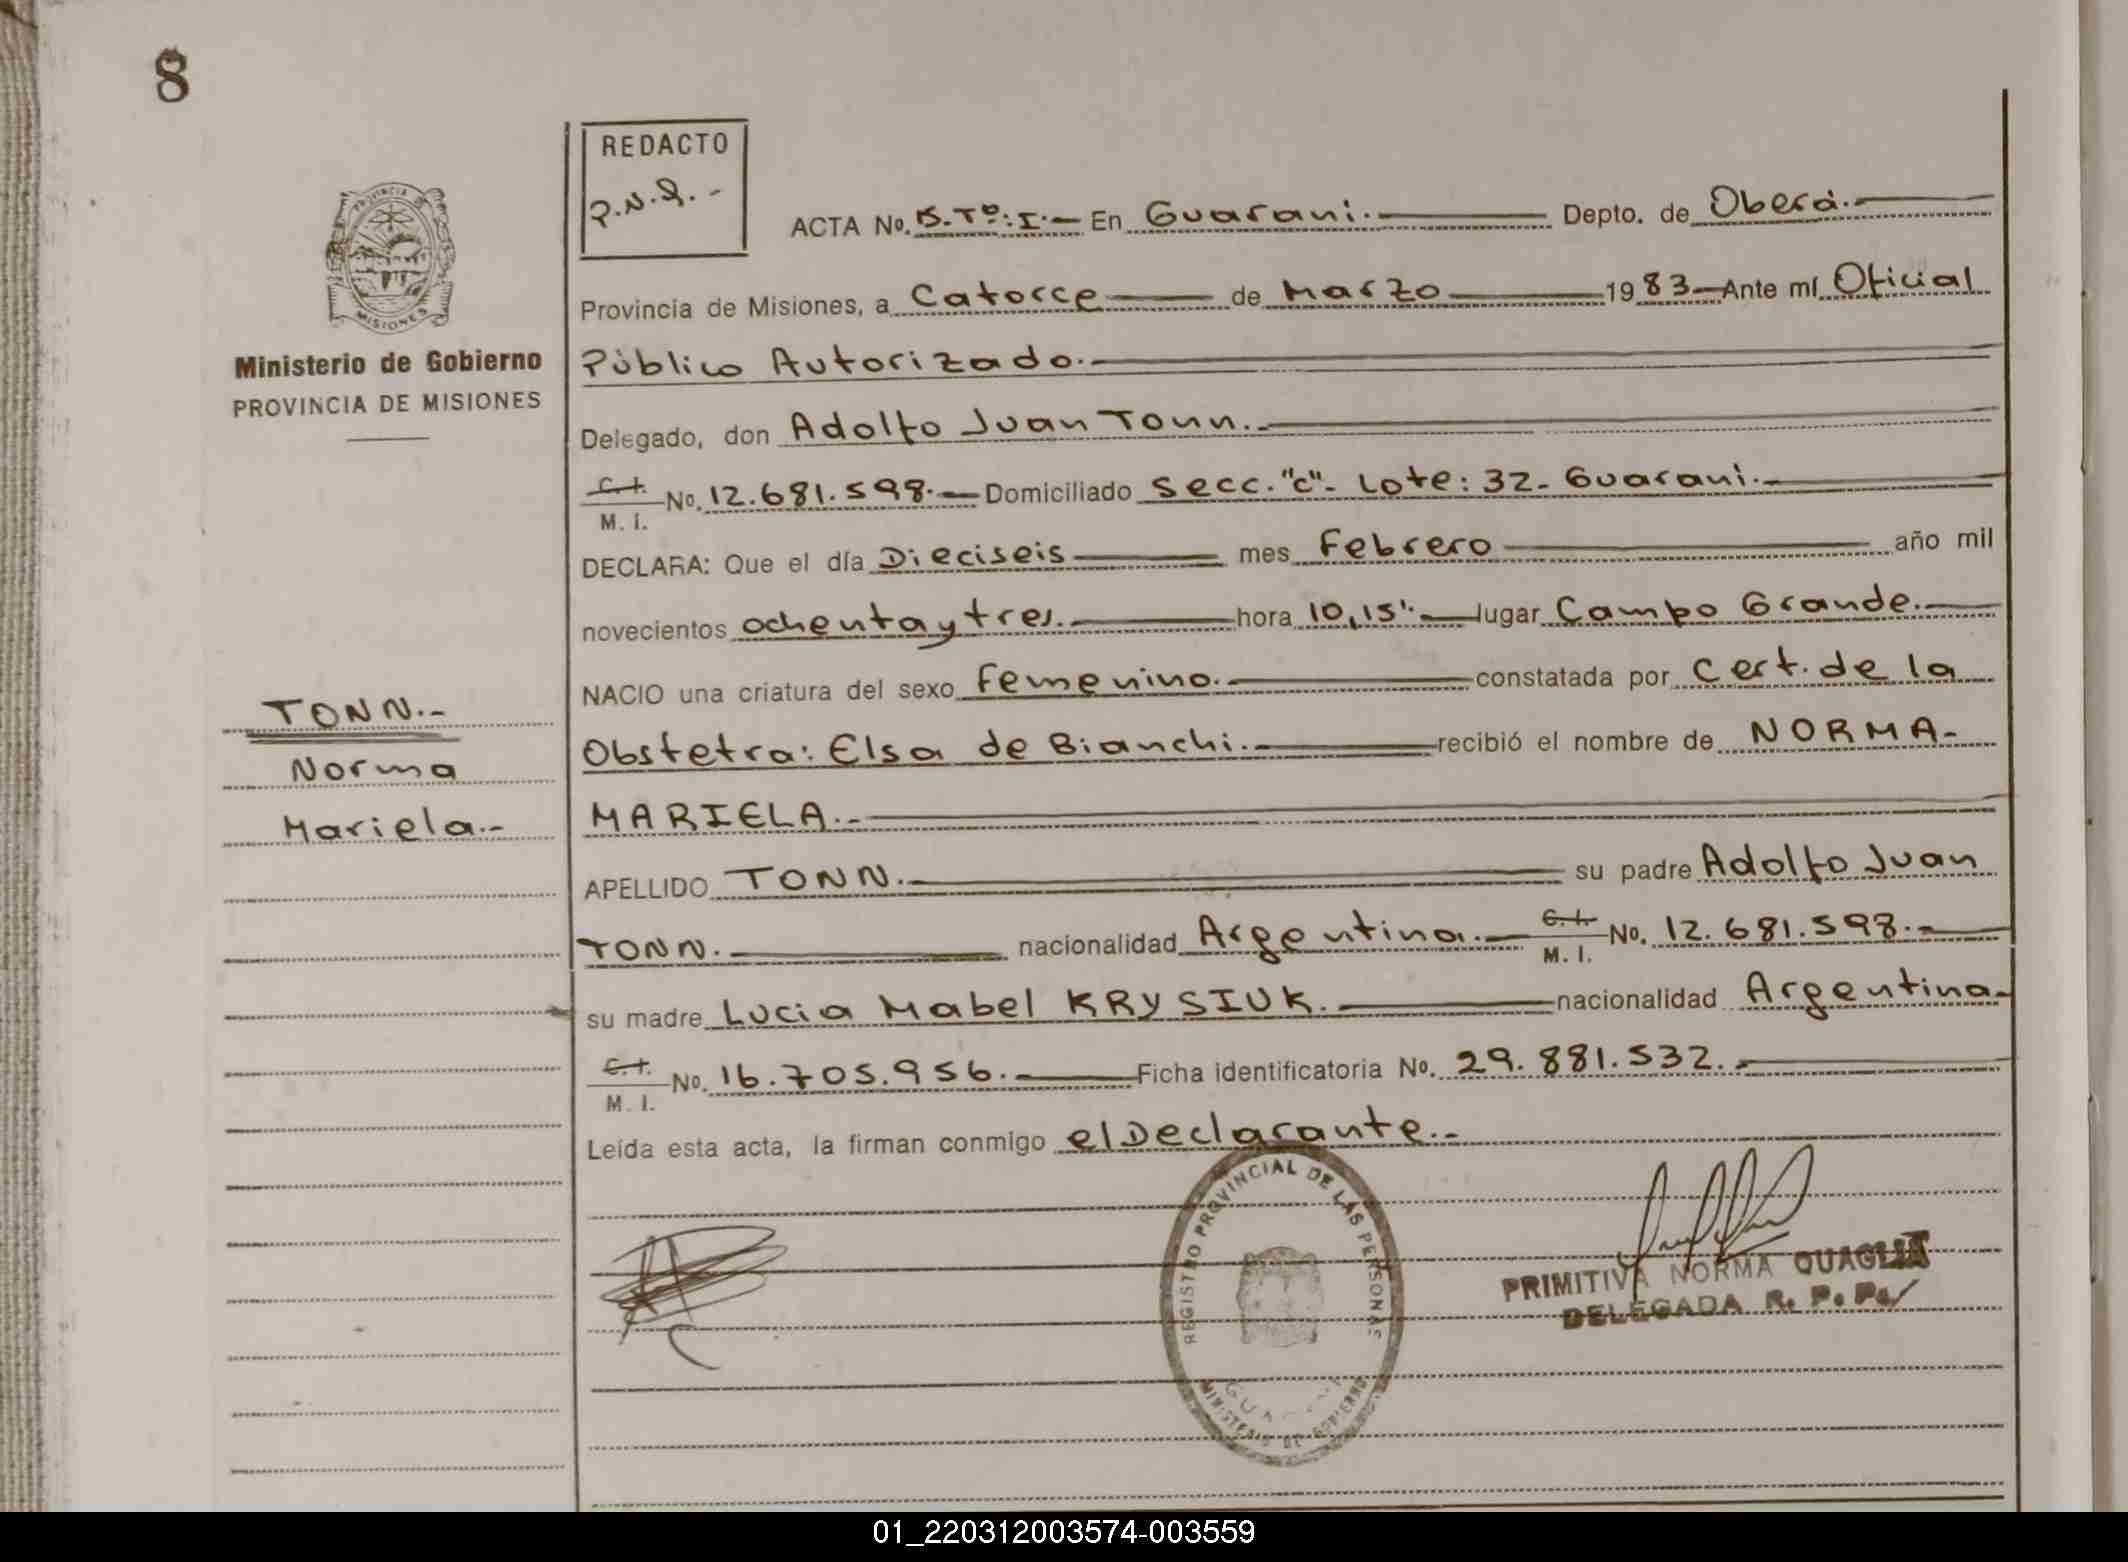 8
REDACTO
P.N.Q.-
PROVINCIA
MISIONES
Ministerio de Gobierno
PROVINCIA DE MISIONES
ACTA No. 15.Tº:I.- En Guarani.- Depto. de Oberá.-
Provincia de Misiones, a Catorce de Marzo 1983 Ante mí Oficial
Público Autorizado.-
Delegado, don Adolfo Juan Tonn.-
C. I.
M. I. No. 12.681.598.- Domiciliado Secc. "C"- Lote: 32- Guarani.-
DECLARA: Que el día Dieciseis mes Febrero año mil
novecientos ochenta y tres.- hora 10,15'.- lugar Campo Grande.-
NACIO una criatura del sexo Femenino.- constatada por Cert. de la
Obstetra: Elsa de Bianchi.- recibió el nombre de NORMA-
MARIELA.-
APELLIDO TONN.- su padre Adolfo Juan
TONN.- nacionalidad Argentina.- C. I.
M. I. No. 12.681.598.-
su madre Lucia Mabel KRYSIUK.- nacionalidad Argentina-
C. I.
M. I. No. 16.705.956.- Ficha identificatoria No. 29.881.532.-
Leída esta acta, la firman conmigo el Declarante.-
TONN.-
Norma
Mariela.-
REGISTRO PROVINCIAL DE LAS PERSONAS
MINISTERIO DE GOBIERNO
PRIMITIVA NORMA QUAGLIA
DELEGADA R. P. P.
01_220312003574-003559